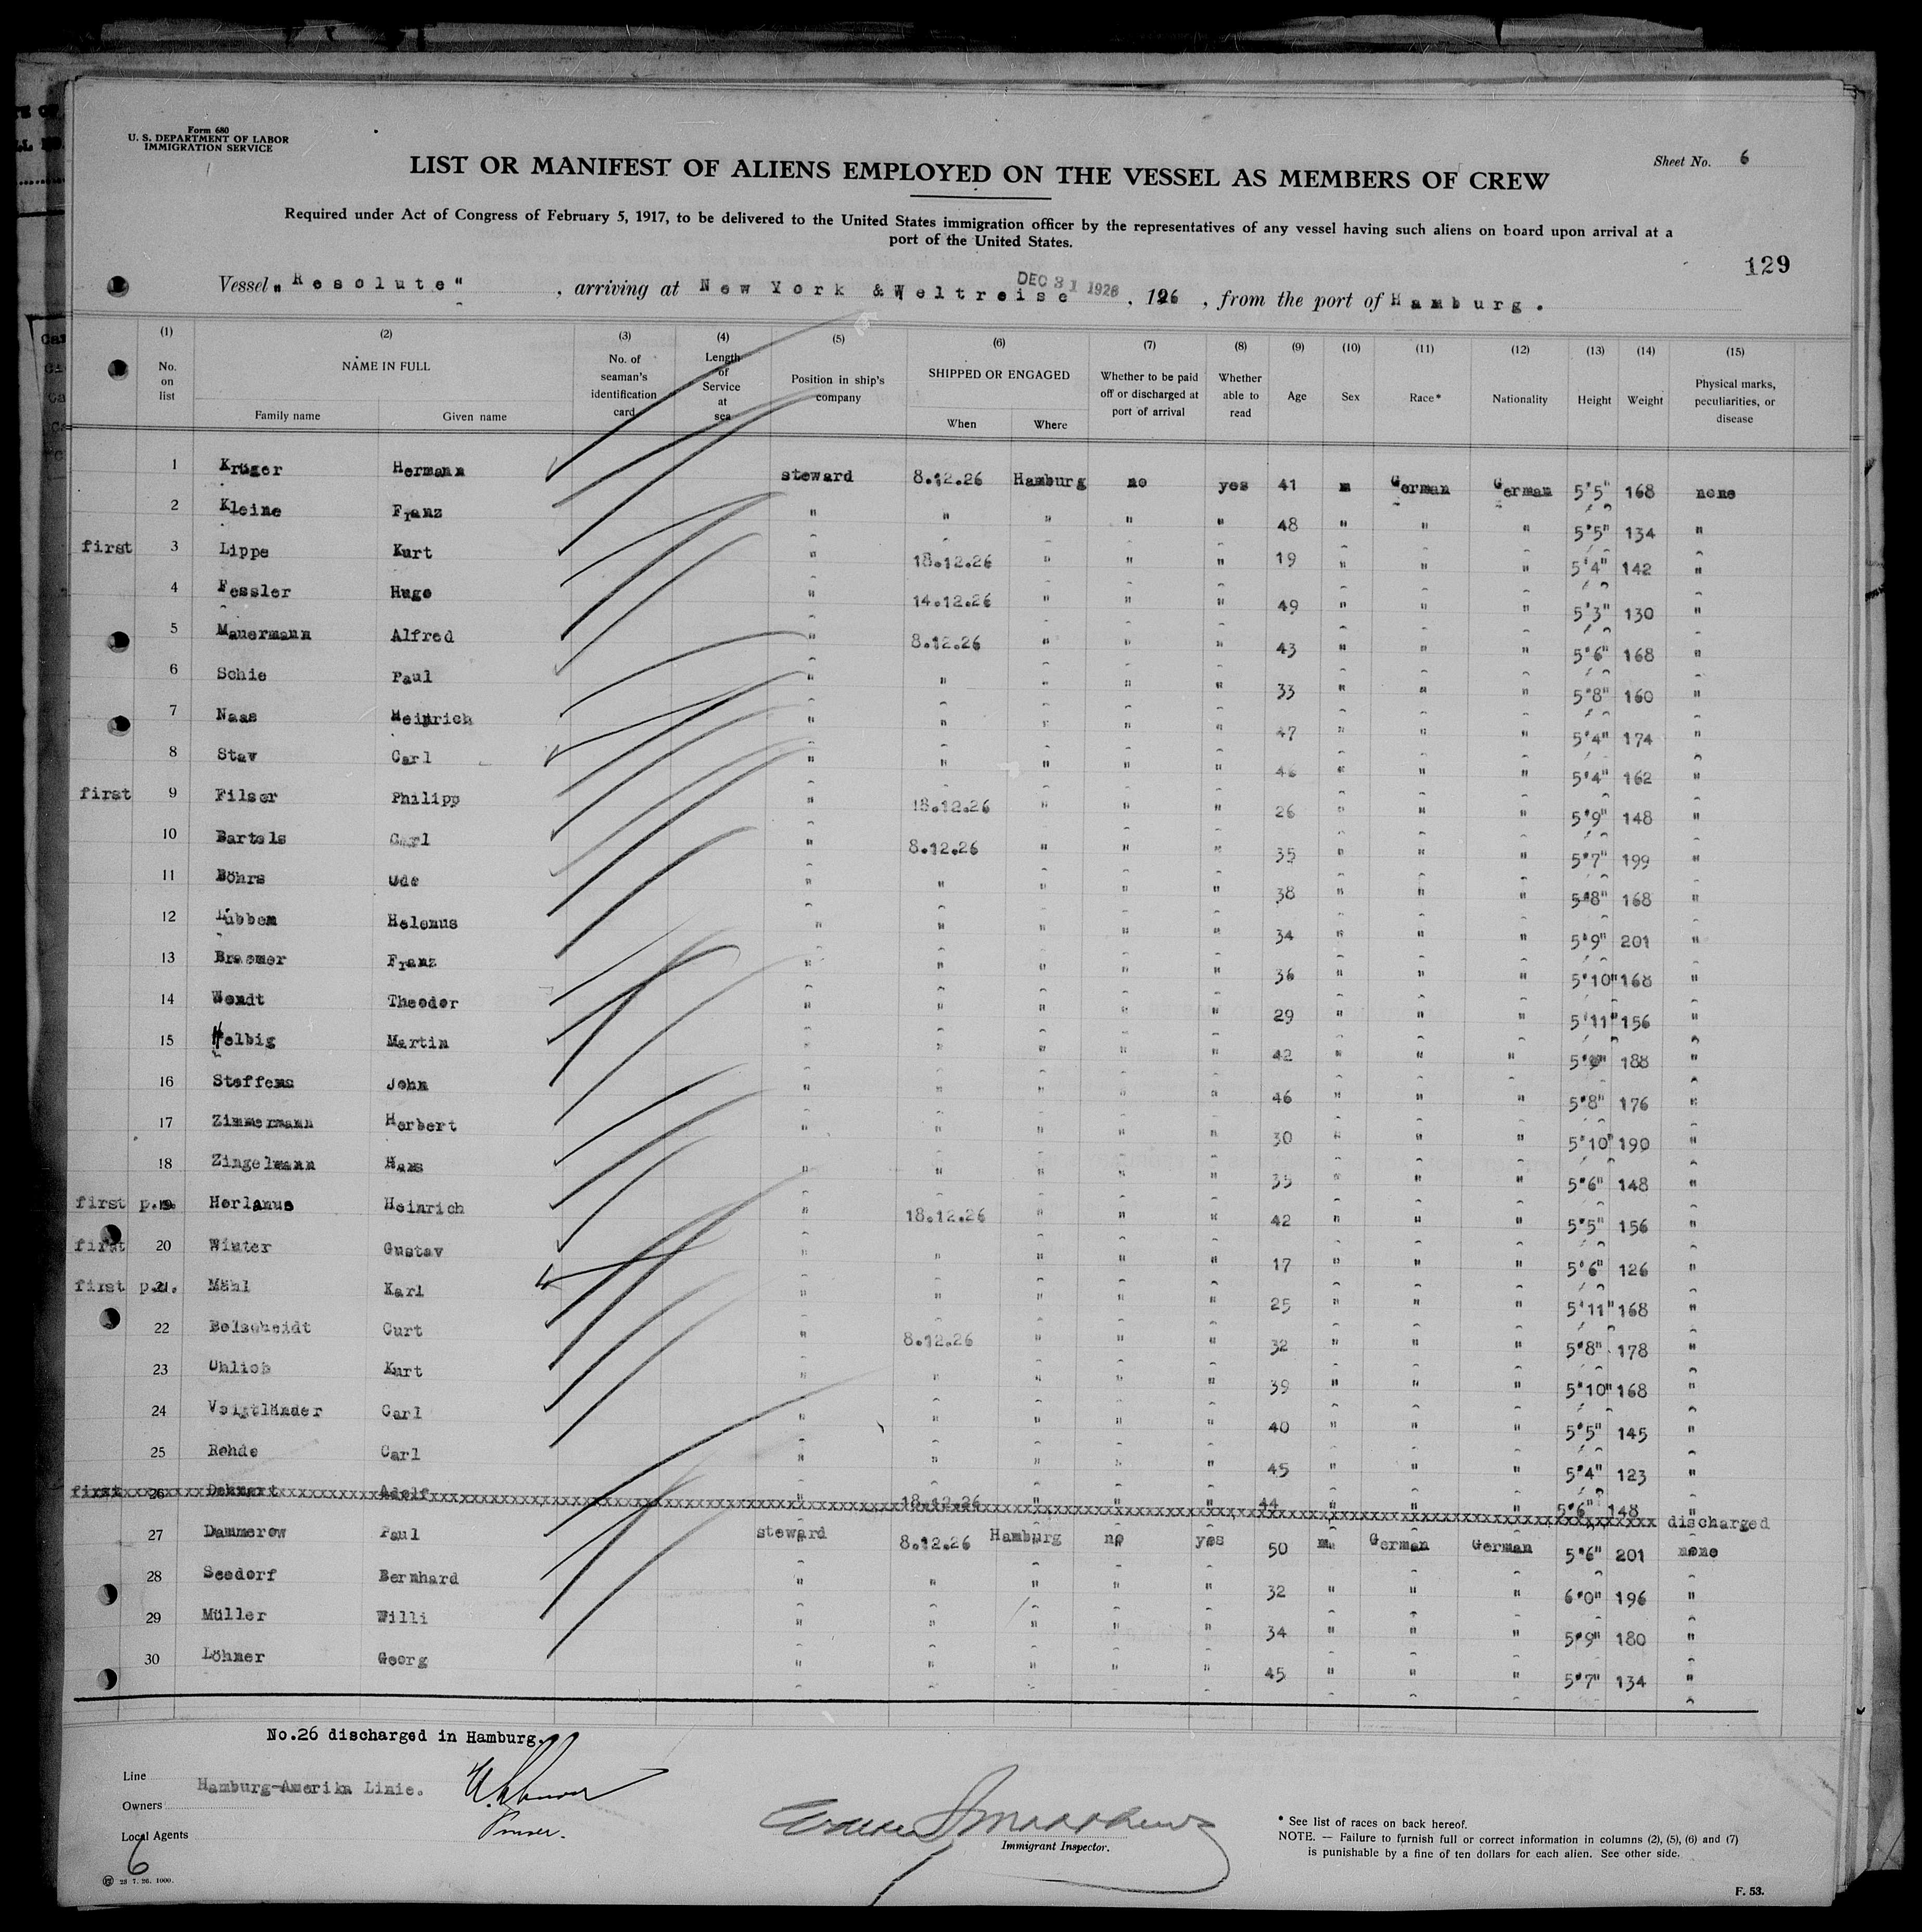 Form 680
U. S. DEPARTMENT OF LABOR
IMMIGRATION SERVICE
Sheet No. 6
LIST OR MANIFEST OF ALIENS EMPLOYED ON THE VESSEL AS MEMBERS OF CREW
Required under Act of Congress of February 5, 1917, to be delivered to the United States immigration officer by the representatives of any vessel having such aliens on board upon arrival at a
port of the United States.
129
Vessel „Resolute“ , arriving at New York & Weltreise DEC 31 1926 , 1926 , from the port of Hamburg.
(1) (2) (3) (4) (5) (6) (7) (8) (9) (10) (11) (12) (13) (14) (15)
No. on list NAME IN FULL Family name Given name No. of seaman's identification card Length of Service at sea Position in ship's company SHIPPED OR ENGAGED When Where Whether to be paid off or discharged at port of arrival Whether able to read Age Sex Race* Nationality Height Weight Physical marks, peculiarities, or disease
1 Krüger Hermann steward 8.12.26 Hamburg no yes 41 m German German 5'5" 168 none
2 Kleine Franz " " " " " 48 " " " 5'5" 134 "
first 3 Lippe Kurt " 18.12.26 " " " 19 " " " 5'4" 142 "
4 Fessler Hugo " 14.12.26 " " " 49 " " " 5'3" 130 "
5 Mauermann Alfred " 8.12.26 " " " 43 " " " 5'6" 168 "
6 Schie Paul " " " " " 33 " " " 5'8" 160 "
7 Naas Heinrich " " " " " 47 " " " 5'4" 174 "
8 Stav Carl " " " " " 46 " " " 5'4" 162 "
first 9 Filser Philipp " 18.12.26 " " " 26 " " " 5'9" 148 "
10 Bartels Carl " 8.12.26 " " " 35 " " " 5'7" 199 "
11 Böhrs Ude " " " " " 38 " " " 5'8" 168 "
12 Lübben Helenus " " " " " 34 " " " 5'9" 201 "
13 Braemer Franz " " " " " 36 " " " 5'10" 168 "
14 Wendt Theodor " " " " " 29 " " " 5'11" 156 "
15 Helbig Martin " " " " " 42 " " " 188 "
16 Steffens John " " " " " 46 " " " 5'8" 176 "
17 Zimmermann Herbert " " " " " 30 " " " 5'10" 190 "
18 Zingelmann Hans " " " " " 35 " " " 5'6" 148 "
first p.m. Herlanus Heinrich " 18.12.26 " " " 42 " " " 5'5" 156 "
first 20 Winter Gustav " " " " " 17 " " " 5'6" 126 "
first 21 Mähl Karl " " " " " 25 " " " 5'11" 168 "
22 Belscheidt Curt " 8.12.26 " " " 32 " " " 5'8" 178 "
23 Uhlich Kurt " " " " " 39 " " " 5'10" 168 "
24 Voigtländer Carl " " " " " 40 " " " 5'5" 145 "
25 Rohde Carl " " " " " 45 " " " 5'4" 123 "
first 26 Adolf " 18.12.26 " " " 44 " " " 5'6" 148 " discharged
27 Dammerow Paul steward 8.12.26 Hamburg no yes 50 m German German 5'6" 201 none
28 Seedorf Bernhard " " " " " 32 " " " 6'0" 196 "
29 Müller Willi " " " " " 34 " " " 5'9" 180 "
30 Löhner Georg " " " " " 45 " " " 5'7" 134 "
No.26 discharged in Hamburg.
Line
Hamburg-Amerika Linie.
Owners
Local Agents
6
Immigrant Inspector.
* See list of races on back hereof.
NOTE. — Failure to furnish full or correct information in columns (2), (5), (6) and (7)
is punishable by a fine of ten dollars for each alien. See other side.
28 7. 26. 1000.
F. 53.